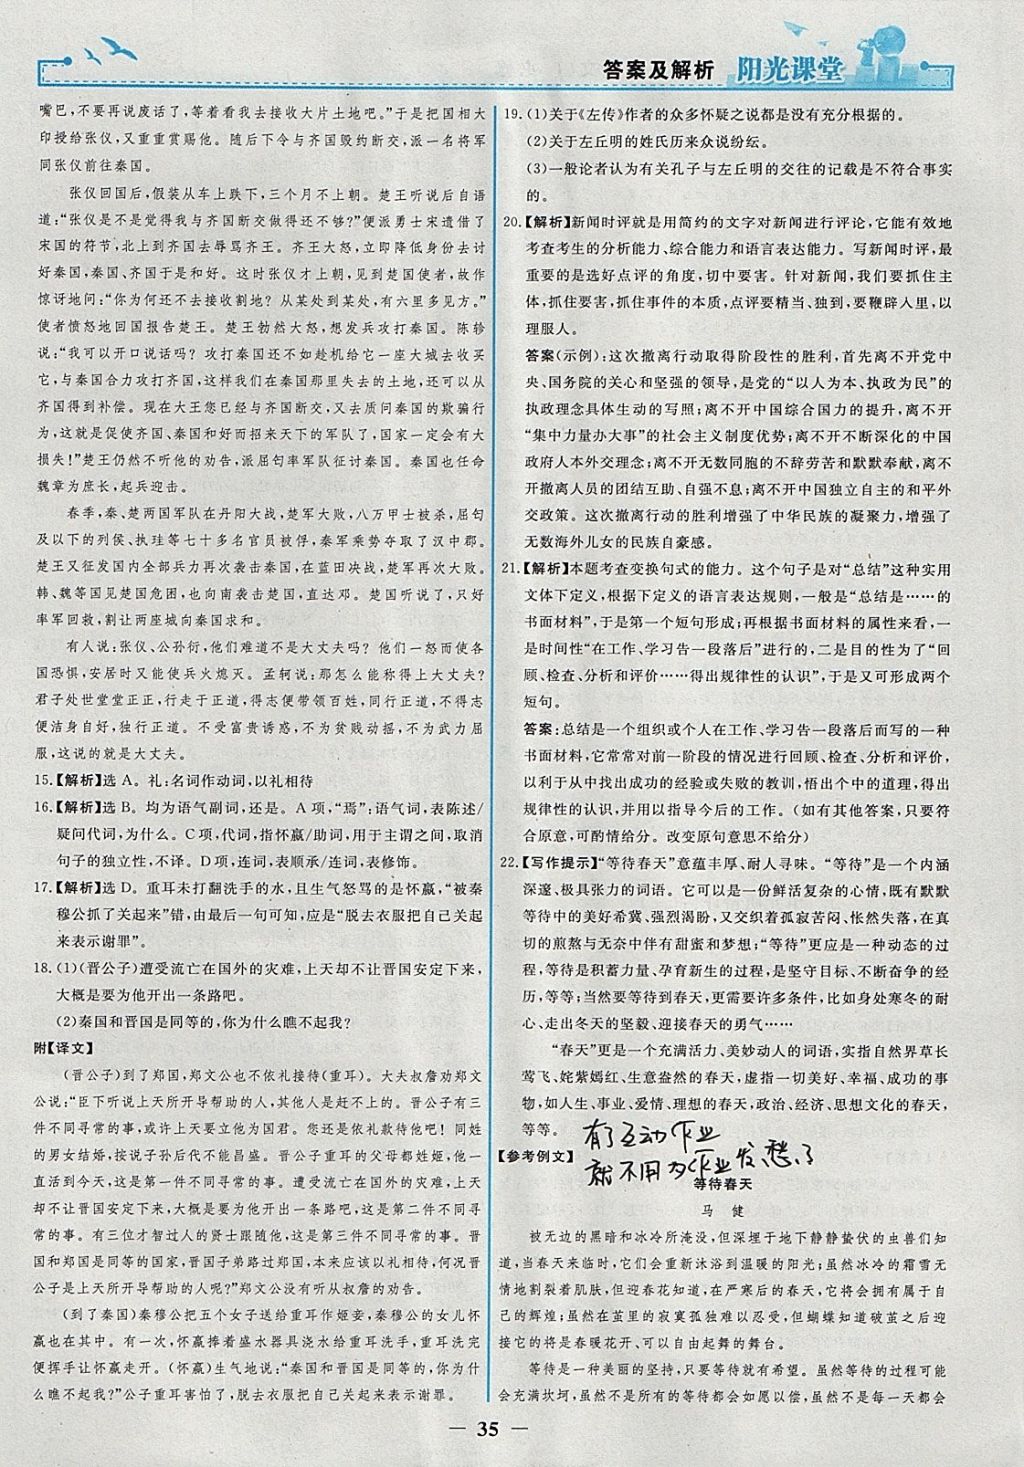 答案及解析 阳光课堂
嘴巴,不要再说废话了,等着看我去接收大片土地吧。”于是把国相大
印授给张仪,又重重赏赐他。随后下令与齐国毁约断交,派一名将军
同张仪前往秦国。
张仪回国后,假装从车上跌下,三个月不上朝。楚王听说后自语
道:“张仪是不是觉得我与齐国断交做得还不够?”便派勇士宋遗借了
宋国的符节,北上到齐国去辱骂齐王。齐王大怒,立即降低身份去讨
好秦国,秦国、齐国于是和好。这时张仪才上朝,见到楚国使者,故作
惊讶地问:“你为何还不去接收割地?从某处到某处,有六里多见方。”
使者愤怒地回国报告楚王。楚王勃然大怒,想发兵攻打秦国。陈轸
说:“我可以开口说话吗?攻打秦国还不如趁机给它一座大城去收买
它,与秦国合力攻打齐国,这样我们在秦国那里失去的土地,还可以从
齐国得到补偿。现在大王您已经与齐国断交,又去质问秦国的欺骗行
为,这就是促使齐国、秦国和好而招来天下的军队了,国家一定会有大
损失!”楚王仍然不听他的劝告,派屈匄率军队征讨秦国。秦国也任命
魏章为庶长,起兵迎击。
春季,秦、楚两国军队在丹阳大战,楚军大败,八万甲士被杀,屈匄
及以下的列侯、执珪等七十多名官员被俘,秦军乘势夺取了汉中郡。
楚王又征发国内全部兵力再次袭击秦国,在蓝田决战,楚军再次大败。
韩、魏等国见楚国危困,也向南袭击楚国,直达邓。楚国听说了,只好
率军回救,割让两座城向秦国求和。
有人说:张仪、公孙衍,他们难道不是大丈夫吗?他们一怒而使各
国恐惧,安居时又能使兵火熄灭。孟轲说:那怎么能称得上大丈夫?
君子处世堂堂正正,行走于正道,得志便带领百姓,同归正道,不得志
便洁身自好,独行正道。不受富贵诱惑,不为贫贱动摇,不为武力屈
服,这说的就是大丈夫。
15.【解析】选A。礼:名词作动词,以礼相待
16.【解析】选B。均为语气副词,还是。A项,“焉”:语气词,表陈述/
疑问代词,为什么。C项,代词,指怀嬴/助词,用于主谓之间,取消
句子的独立性,不译。D项,连词,表顺承/连词,表修饰。
17.【解析】选D。重耳未打翻洗手的水,且生气怒骂的是怀嬴,“被秦
穆公抓了关起来”错,由最后一句可知,应是“脱去衣服把自己关起
来表示谢罪”。
18.(1)(晋公子)遭受流亡在国外的灾难,上天却不让晋国安定下来,
大概是要为他开出一条路吧。
(2)秦国和晋国是同等的,你为什么瞧不起我?
附【译文】
(晋公子)到了郑国,郑文公也不依礼接待(重耳)。大夫叔詹劝郑文
公说:“臣下听说上天所开导帮助的人,其他人是赶不上的。晋公子有三
件不同寻常的事,或许上天要立他为国君。您还是依礼款待他吧!同姓
的男女结婚,按说子孙后代不能昌盛。晋公子重耳的父母都姓姬,他一
直活到今天,这是第一件不同寻常的事。遭受流亡在国外的灾难,上天
却不让晋国安定下来,大概是要为他开出一条路吧,这是第二件不同寻
常的事。有三位才智过人的贤士跟随他,这是第三件不同寻常的事。晋
国和郑国是同等的国家,晋国子弟路过郑国,本来应该以礼相待,何况晋
公子是上天所开导帮助的人呢?”郑文公没有听从叔詹的劝告。
(到了秦国)秦穆公把五个女子送给重耳作姬妾,秦穆公的女儿怀
嬴也在其中。有一次,怀嬴捧着盛水器具浇水给重耳洗手,重耳洗完
便挥手让怀嬴走开。(怀嬴)生气地说:“秦国和晋国是同等的,你为什
么瞧不起我?”公子重耳害怕了,脱去衣服把自己关起来表示谢罪。
19.(1)关于《左传》作者的众多怀疑之说都是没有充分根据的。
(2)关于左丘明的姓氏历来众说纷纭。
(3)一般论者认为有关孔子与左丘明的交往的记载是不符合事实
的。
20.【解析】新闻时评就是用简约的文字对新闻进行评论,它能有效地
考查考生的分析能力、综合能力和语言表达能力。写新闻时评,最
重要的是选好点评的角度,切中要害。针对新闻,我们要抓住主
体,抓住要害,抓住事件的本质,点评要精当、独到,要鞭辟入里,以
理服人。
答案(示例):这次撤离行动取得阶段性的胜利,首先离不开党中
央、国务院的关心和坚强的领导,是党的“以人为本、执政为民”的
执政理念具体生动的写照;离不开中国综合国力的提升,离不开
“集中力量办大事”的社会主义制度优势;离不开不断深化的中国
政府人本外交理念;离不开无数同胞的不辞劳苦和默默奉献,离不
开撤离人员的团结互助、自强不息;离不开中国独立自主的和平外
交政策。这次撤离行动的胜利增强了中华民族的凝聚力,增强了
无数海外儿女的民族自豪感。
21.【解析】本题考查变换句式的能力。这个句子是对“总结”这种实用
文体下定义,根据下定义的语言表达规则,一般是“总结是……的
书面材料”,于是第一个短句形成;再根据书面材料的属性来看,一
是时间性“在工作、学习告一段落后”进行的,二是目的性为了“回
顾、检查、分析和评价……得出规律性的认识”,于是又可形成两个
短句。
答案:总结是一个组织或个人在工作、学习告一段落后而写的一种
书面材料,它常常对前一阶段的情况进行回顾、检查、分析和评价,
以利于从中找出成功的经验或失败的教训,悟出个中的道理,得出
规律性的认识,并用以指导今后的工作。(如有其他答案,只要符
合原意,可酌情给分。改变原句意思不给分)
22.【写作提示】“等待春天”意蕴丰厚、耐人寻味。“等待”是一个内涵
深邃、极具张力的词语。它可以是一份鲜活复杂的心情,既有默默
等待中的美好希冀、强烈渴盼,又交织着孤寂苦闷、怅然失落,在真
切的煎熬与无奈中伴有甜蜜和梦想;“等待”更应是一种动态的过
程,等待是积蓄力量、孕育新生的过程,是坚守目标、不断奋争的经
历,等等;当然要等待到春天,更需要许多条件,比如身处寒冬的耐
心、走出冬天的坚毅、迎接春天的勇气……
“春天”更是一个充满活力、美妙动人的词语,实指自然界草长
莺飞、姹紫嫣红、生意盎然的春天,虚指一切美好、幸福、成功的事
物,如人生、事业、爱情、理想的春天,政治、经济、思想文化的春天,
等等。
有了互动作业
【参考例文】
就不用为作业发愁了
等待春天
马 健
被无边的黑暗和冰冷所淹没,但深埋于地下静静蛰伏的虫兽们知
道,当春天来临时,它们会重新沐浴到温暖的阳光;虽然冰冷的霜雪无
情地割裂着肌肤,但迎春花知道,在严寒后的春天,它将会拥有属于自
己的辉煌;虽然在茧里的寂寞孤独难以忍受,但蝴蝶知道破茧之后迎
接它的将是春暖花开、可以自由起舞的舞台。
等待是一种美丽的坚持,只要等待就有希望。虽然等待的过程可能
会充满坎坷,虽然不是所有的等待都会如愿以偿,虽然不是每一天都会
— 35 —